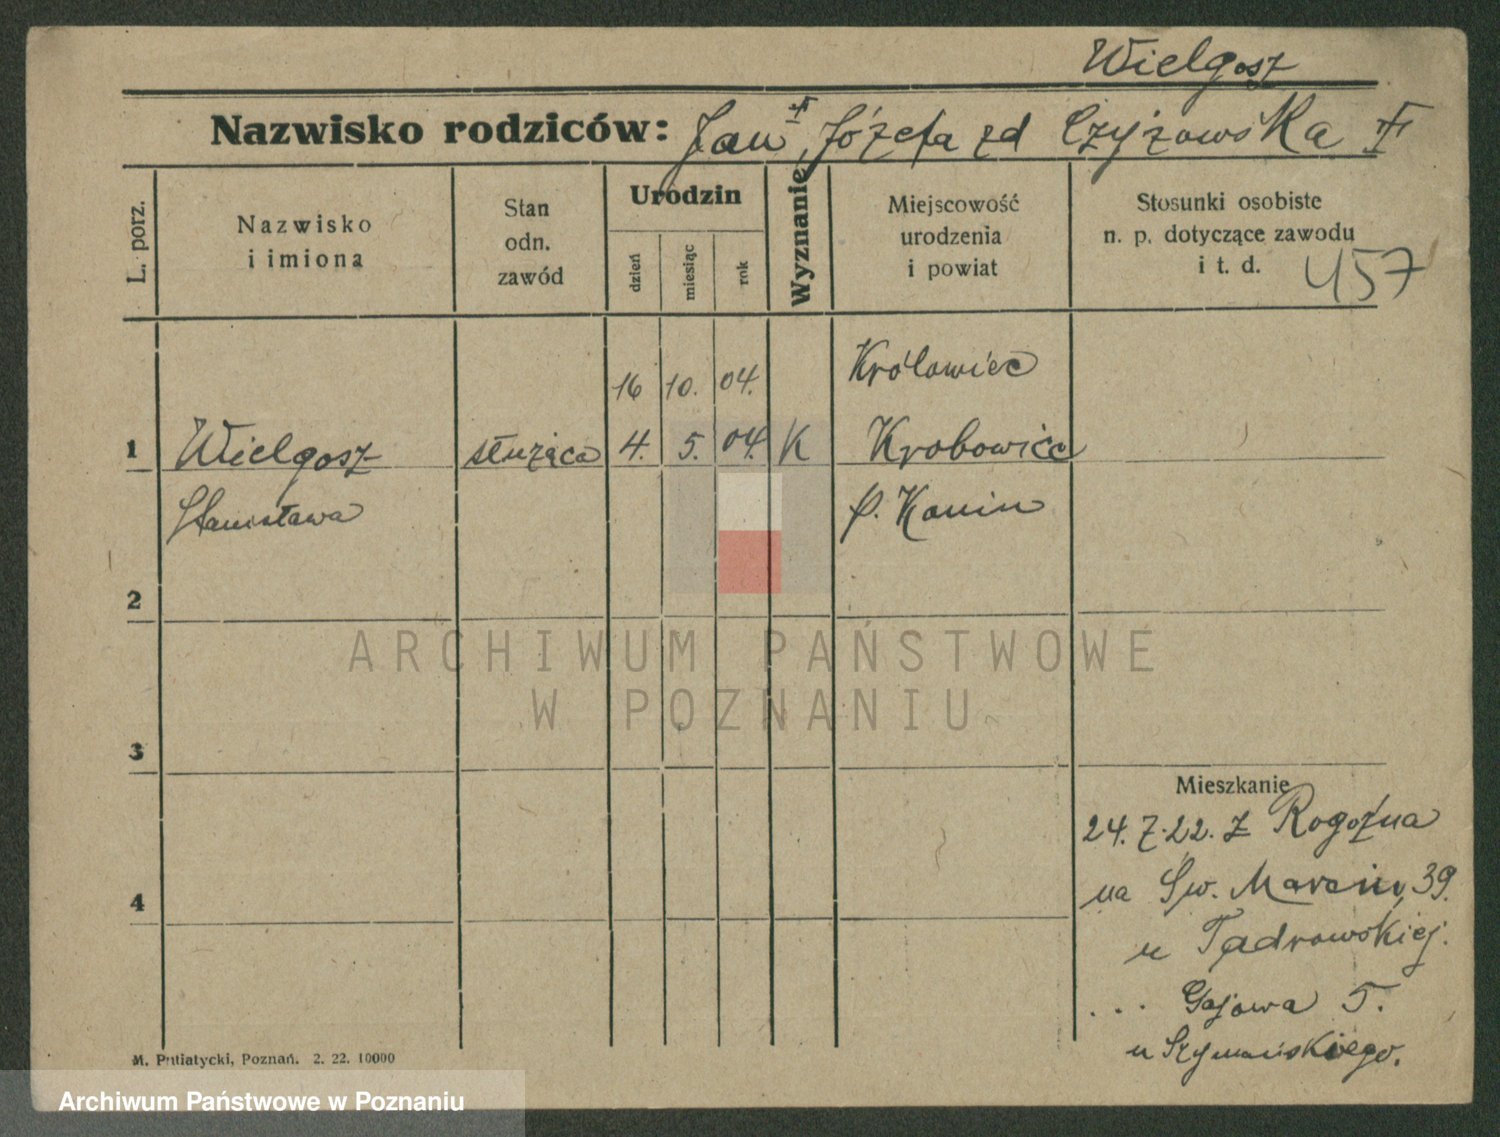 Wielgosz
Nazwisko rodziców: Jan ‡, Józefa zd Czyżowska ‡
L. porz.
Nazwisko
i imiona
Stan
odn.
zawód
Urodzin
dzień
miesiąc
rok
Wyznanie
Miejscowość
urodzenia
i powiat
Stosunki osobiste
n. p. dotyczące zawodu
i t. d.
457
16 10. 04. Królowiec
1 Wielgosz służąca 4. 5. 04. K Krobowice
Stanisława p. Konin
2
ARCHIWUM PAŃSTWOWE
W POZNANIU
3
Mieszkanie
24. 7. 22. z Rogoźna
na Św. Marcin, 39.
u Tądrowskiej.
... Gajowa 5.
u Szymańskiego.
4
M. Putiatycki, Poznań. 2. 22. 10000
Archiwum Państwowe w Poznaniu